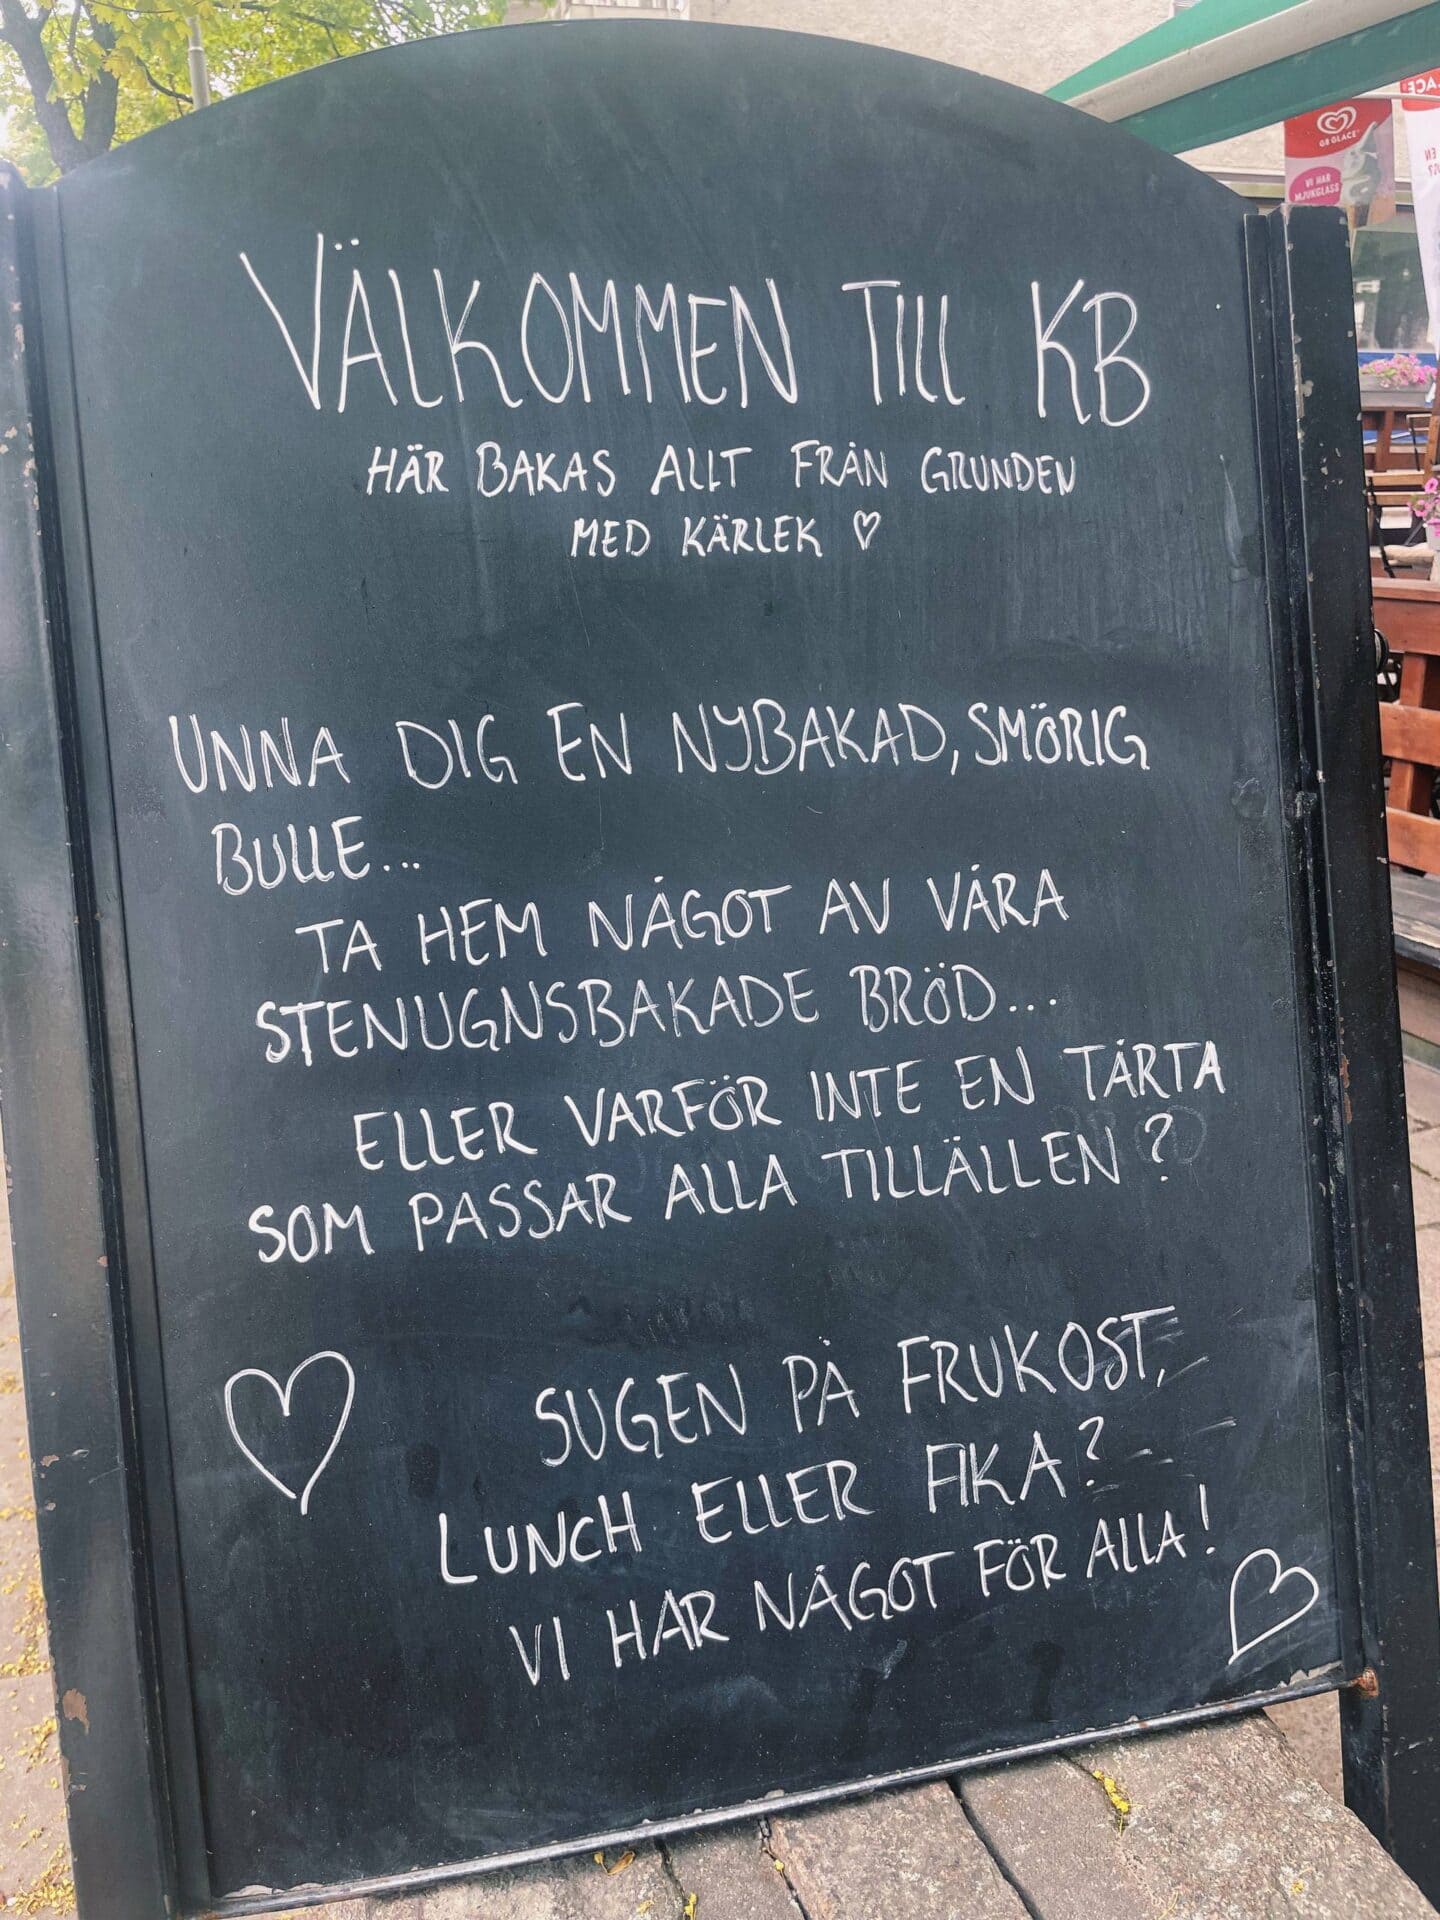 VÄLKOMMEN TILL KB
HÄR BAKAS ALLT FRÅN GRUNDEN
MED KÄRLEK ♡
UNNA DIG EN NYBAKAD, SMÖRIG
BULLE...
TA HEM NÅGOT AV VÅRA
STENUGNSBAKADE BRÖD...
ELLER VARFÖR INTE EN TÅRTA
SOM PASSAR ALLA TILLÄLLEN?
SUGEN PÅ FRUKOST,
LUNCH ELLER FIKA?
VI HAR NÅGOT FÖR ALLA!
GB GLACE
VI HAR
MJUKGLASS